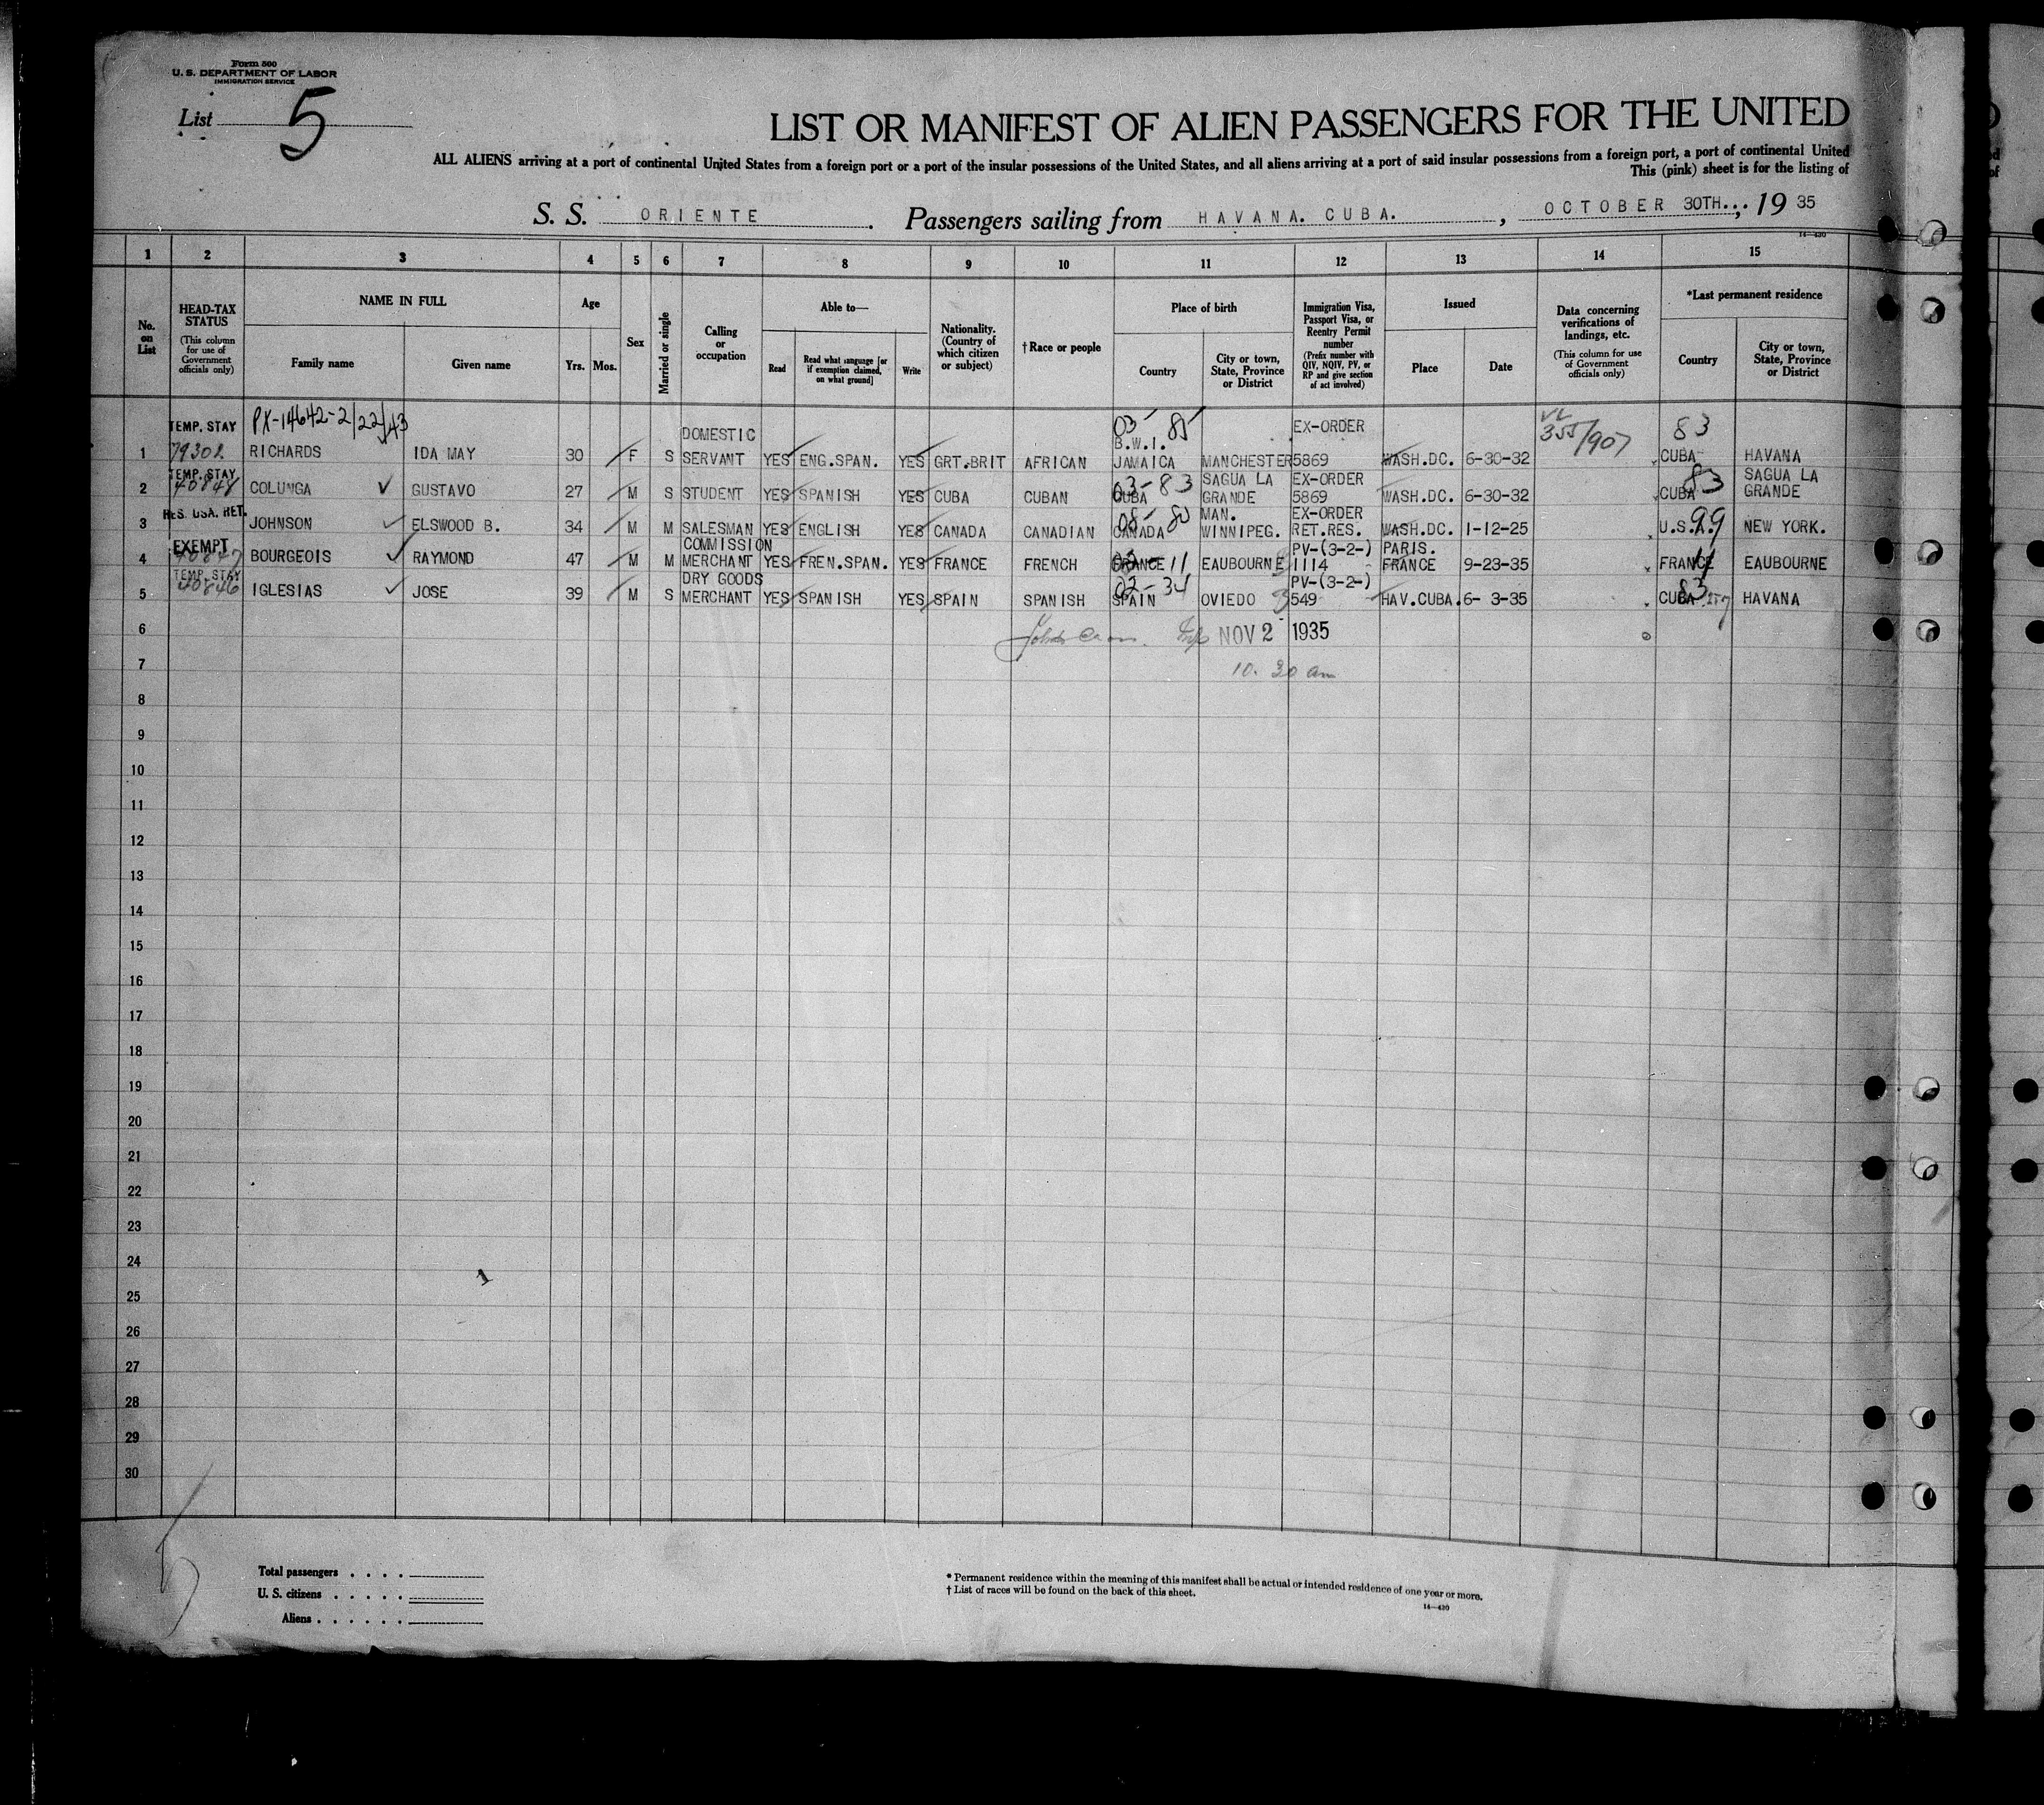 Form 500
U. S. DEPARTMENT OF LABOR
IMMIGRATION SERVICE
List 5
LIST OR MANIFEST OF ALIEN PASSENGERS FOR THE UNITED
ALL ALIENS arriving at a port of continental United States from a foreign port or a port of the insular possessions of the United States, and all aliens arriving at a port of said insular possessions from a foreign port, a port of continental United
This (pink) sheet is for the listing of
S. S. ORIENTE. Passengers sailing from HAVANA. CUBA., OCTOBER 30TH..., 19 35
14-430
1 2 3 4 5 6 7 8 9 10 11 12 13 14 15
No. on List
HEAD-TAX STATUS (This column for use of Government officials only)
NAME IN FULL
Family name Given name
Age
Yrs. Mos.
Sex
Married or single
Calling or occupation
Able to—
Read
Read what language [or if exemption claimed, on what ground]
Write
Nationality. (Country of which citizen or subject)
†Race or people
Place of birth
Country
City or town, State, Province or District
Immigration Visa, Passport Visa, or Reentry Permit number (Prefix number with QIV, NQIV, PV, or RP and give section of act involved)
Issued
Place Date
Data concerning verifications of landings, etc. (This column for use of Government officials only)
*Last permanent residence
Country
City or town, State, Province or District
TEMP. STAY PX-14642-2/22/43 DOMESTIC 03- 85 B.W.I. EX-ORDER 355/907 83
1 RICHARDS IDA MAY 30 F S SERVANT YES ENG.SPAN. YES GRT.BRIT AFRICAN JAMAICA MANCHESTER 5869 WASH.DC. 6-30-32 CUBA HAVANA
TEMP. STAY 03-83 SAGUA LA EX-ORDER 83 SAGUA LA
2 40848 COLUNGA GUSTAVO 27 M S STUDENT YES SPANISH YES CUBA CUBAN CUBA GRANDE 5869 WASH.DC. 6-30-32 CUBA GRANDE
RES. USA. RET. 08-80 MAN. EX-ORDER 99
3 JOHNSON ELSWOOD B. 34 M M SALESMAN YES ENGLISH YES CANADA CANADIAN CANADA WINNIPEG. RET.RES. WASH.DC. 1-12-25 U.S.A. NEW YORK.
EXEMPT COMMISSION PV-(3-2-) PARIS.
4 40847 BOURGEOIS RAYMOND 47 M M MERCHANT YES FREN.SPAN. YES FRANCE FRENCH FRANCE 11 EAUBOURNE 1114 FRANCE 9-23-35 FRANCE 11 EAUBOURNE
TEMP. STAY DRY GOODS 02-34 PV-(3-2-) 83
5 40846 IGLESIAS JOSE 39 M S MERCHANT YES SPANISH YES SPAIN SPANISH SPAIN OVIEDO 549 HAV.CUBA. 6- 3-35 CUBA HAVANA
6 NOV 2 1935
7 10. 30 am
8
9
10
11
12
13
14
15
16
17
18
19
20
21
22
23
24
25
26
27
28
29
30
Total passengers
U. S. citizens
Aliens
* Permanent residence within the meaning of this manifest shall be actual or intended residence of one year or more.
† List of races will be found on the back of this sheet.
14-430